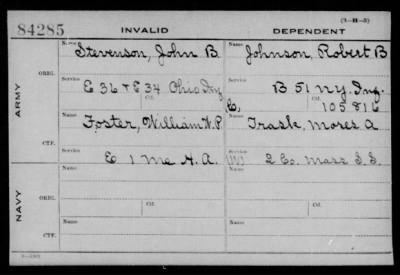 (3—H—5)
84285 INVALID DEPENDENT
Name Stevenson, John B. Name Johnson, Robert B
ARMY
ORIG. Service E 36 & E 34 Ohio Inf Service B 51 N.Y. Inf.
Ctf. C, Ctf. 105816
Name Foster, William W. P. Name Trask, Moses A
CTF. Service E 1 Me H. A. Service 2 Co. Mass S. S.
NAVY
Name Name
ORIG. Service Ctf. Service Ctf.
Name Name
CTF. Service Service